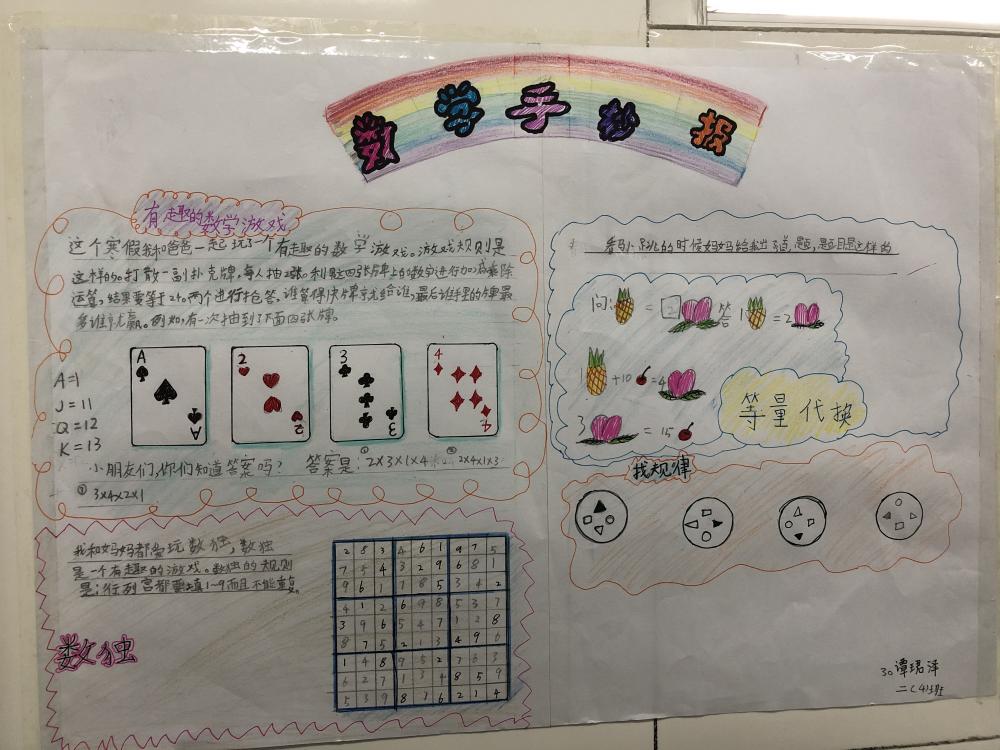 数学手抄报
有趣的数学游戏
这个寒假我和爸爸一起玩了一个有趣的数学游戏。游戏规则是
这样的。打散一副扑克牌,每人抽2张。利用这四张牌上的数字进行加减乘除
运算。结果要等于24。两个进行抢答。谁算得快牌就给谁。最后谁手里的牌最
多谁就赢。例如,有一次抽到了下面四张牌。
A=1
J=11
Q=12
K=13
A
A
2
2
3
3
4
4
小朋友们,你们知道答案吗? 答案是:①2×3×1×4 ②2×4×1×3
③3×4×2×1
我和妈妈都爱玩数独,数独
是一个有趣的游戏。数独的规则
是:行列宫都要填1~9而且不能重复。
数独
2 8 3 4 6 1 9 7 5
7 5 4 3 2 9 6 8 1
9 6 1 7 8 5 3 4 2
4 1 2 6 9 8 5 3 7
3 9 6 5 4 7 1 2 8
8 7 5 2 1 3 4 9 6
1 4 8 9 5 2 7 6 3
6 2 7 1 3 4 8 5 9
5 3 9 8 6 2 1 4
的时候妈妈给我出了道题,题目是这样的
问: = 2 答 1 = 2
1 +10 =4
3 = 15
等量代换
找规律
30谭珺泽
二(4)班